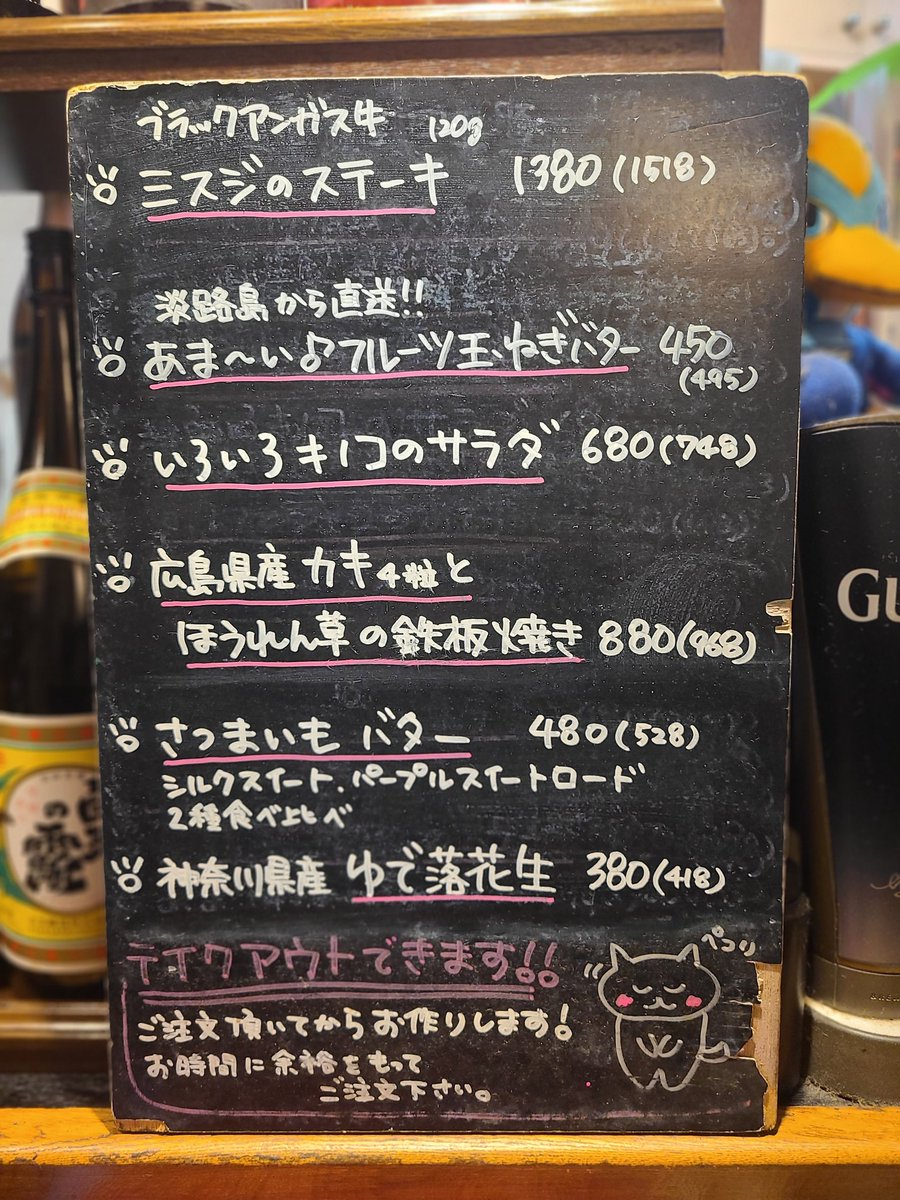 ブラックアンガス牛 120g
ミスジのステーキ 1380(1518)
淡路島から直送!!
あま〜い♪フルーツ玉ねぎバター 450
(495)
いろいろキノコのサラダ 680(748)
広島県産カキ4粒と
ほうれん草の鉄板焼き 880(968)
さつまいもバター 480(528)
シルクスイート、パープルスイートロード
2種食べ比べ
神奈川県産 ゆで落花生 380(418)
テイクアウトできます!!
ペコリ
ご注文頂いてからお作りします!
お時間に余裕をもって
ご注文下さい。
GU